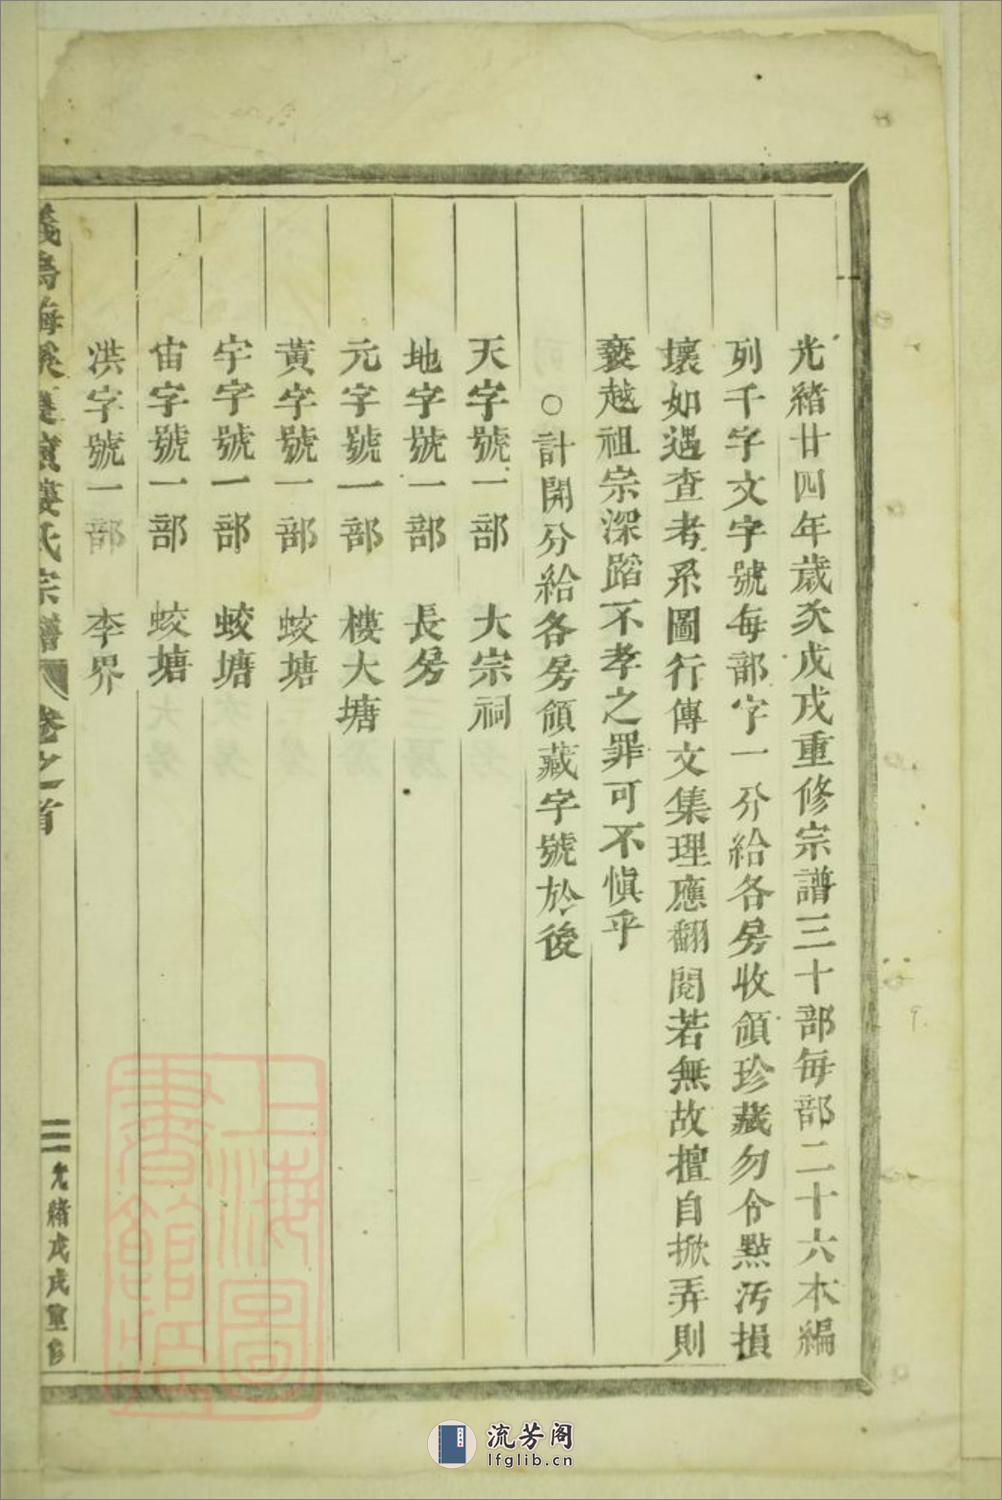 光緖廿四年歲次戊戌重修宗譜三十部每部二十六本編
列千字文字號每部字一分給各房收領珍藏勿令點汚損
壞如遇查考系圖行傳文集理應翻閱若無故擅自掀弄則
褻越祖宗深蹈不孝之罪可不愼乎
○計開分給各房領藏字號於後
天字號一部 大宗祠
地字號一部 長房
元字號一部 樓大塘
黃字號一部 蛟塘
宇字號一部 蛟塘
宙字號一部 蛟塘
洪字號一部 李界
義烏 樓氏宗譜 卷之首 三 光緖戊戌重修
上海圖書館藏
流芳阁
lfglib.cn